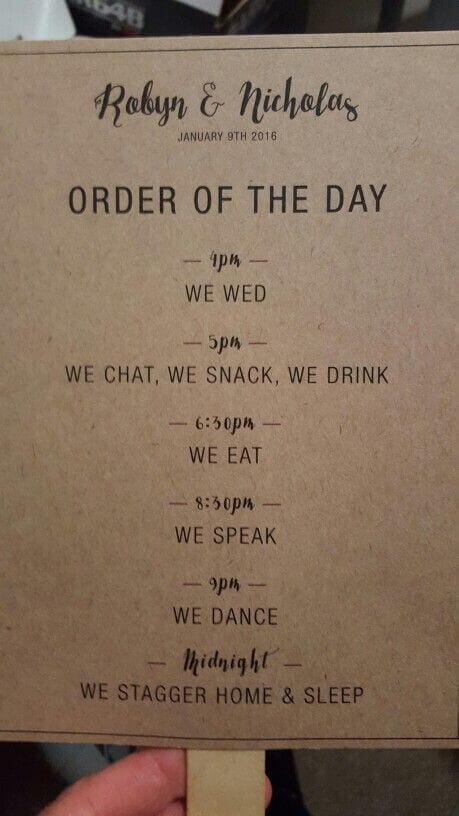 Robyn & Nicholas
JANUARY 9TH 2016
ORDER OF THE DAY
— 4pm —
WE WED
— 5pm —
WE CHAT, WE SNACK, WE DRINK
— 6:30pm —
WE EAT
— 8:30pm —
WE SPEAK
— 9pm —
WE DANCE
— Midnight —
WE STAGGER HOME & SLEEP